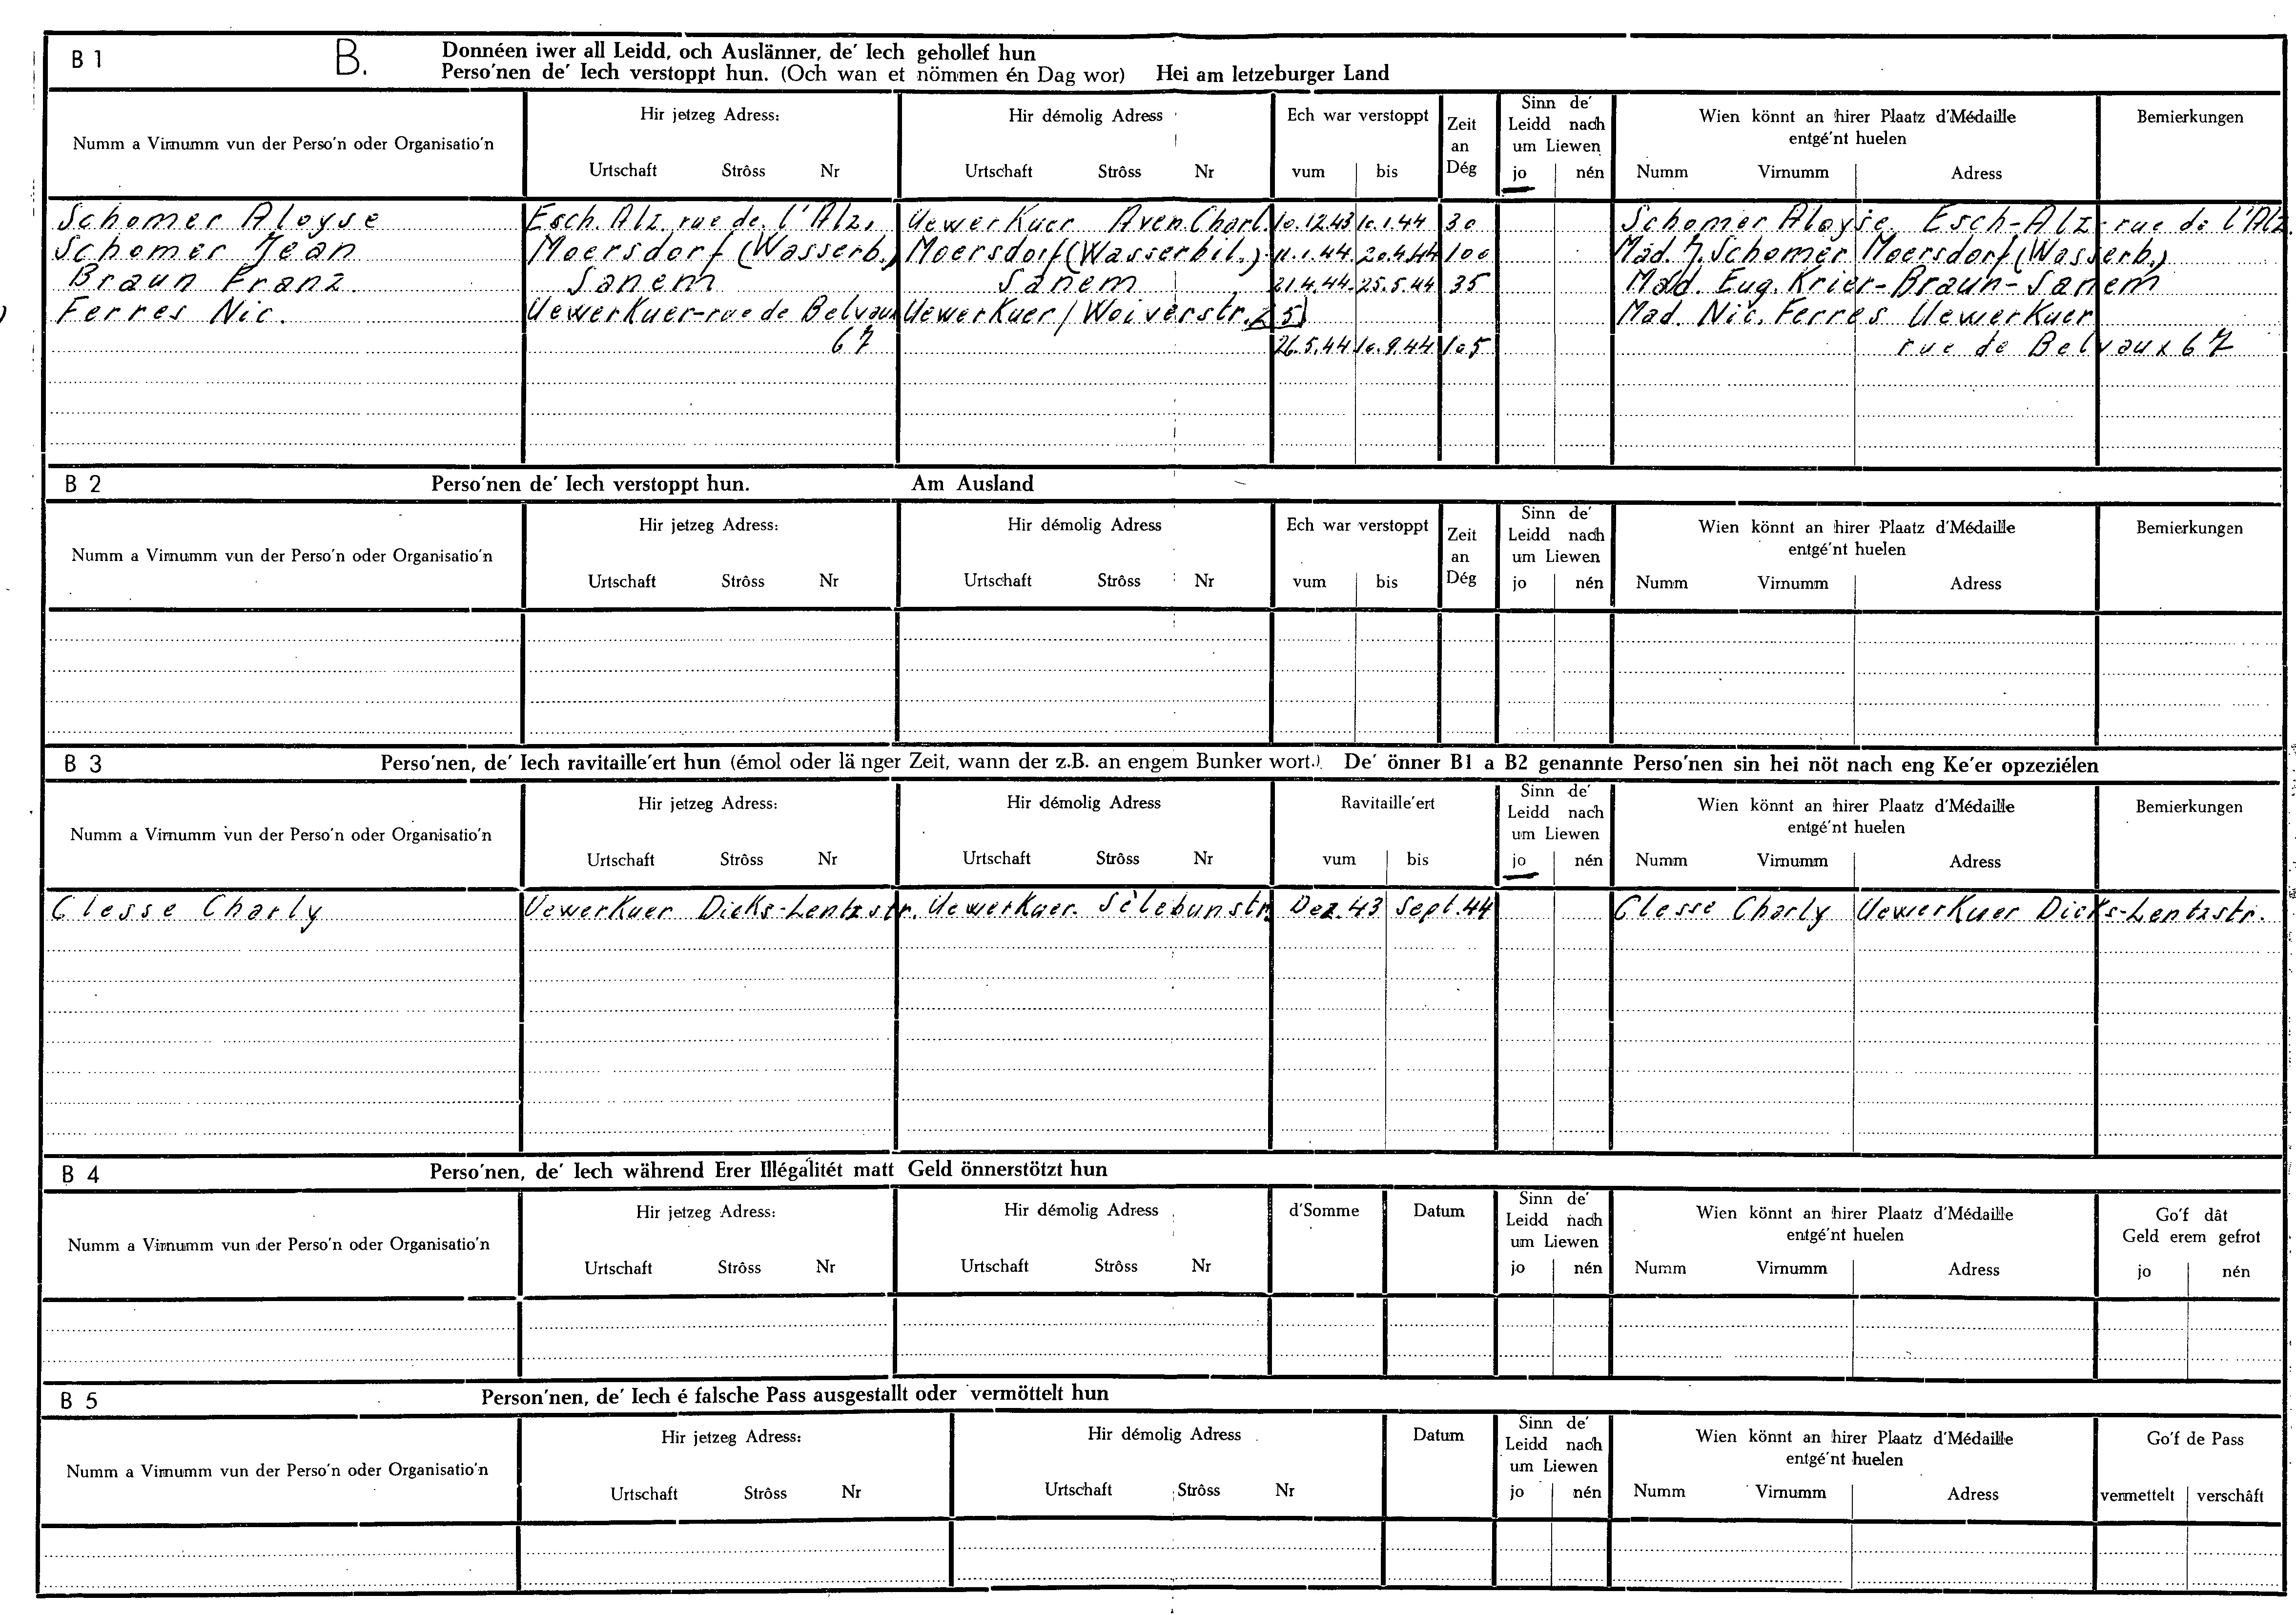 B 1 B. Donnéen iwer all Leidd, och Auslänner, de′ Iech gehollef hun
Perso′nen de′ Iech verstoppt hun. (Och wan et nömmen én Dag wor) Hei am letzeburger Land
Numm a Virnumm vun der Perso′n oder Organisatio′n
Hir jetzeg Adress:
Urtschaft Strôss Nr
Hir démolig Adress
Urtschaft Strôss Nr
Ech war verstoppt
vum bis
Zeit
an
Dég
Sinn de′
Leidd nach
um Liewen
jo nén
Wien könnt an hirer Plaatz d′Médaille
entgé′nt huelen
Numm Virnumm Adress
Bemierkungen
Schomer Aloyse Esch. Alz. rue de l'Alz. Uewerkuer Aven. Charl. 10.12.43 10.1.44 30 Schomer Aloyse Esch-Alz-rue de l'Alz.
Schomer Jean Moersdorf (Wasserb.) Moersdorf (Wasserbil.) 11.1.44. 20.4.44 100 Mad. J. Schomer Moersdorf (Wasserb.)
Braun Franz. Sanem Sanem 21.4.44.-25.5.44 35 Mad. Eug. Krier-Braun-Sanem
Ferres Nic. Uewerkuer-rue de Belvaux Uewerkuer/Woiverstr. 25) Mad. Nic. Ferres Uewerkuer
67 26.5.44 10.9.44 105 rue de Belvaux 67
B 2 Perso′nen de′ Iech verstoppt hun. Am Ausland
Numm a Virnumm vun der Perso′n oder Organisatio′n
Hir jetzeg Adress:
Urtschaft Strôss Nr
Hir démolig Adress
Urtschaft Strôss Nr
Ech war verstoppt
vum bis
Zeit
an
Dég
Sinn de′
Leidd nach
um Liewen
jo nén
Wien könnt an hirer Plaatz d′Médaille
entgé′nt huelen
Numm Virnumm Adress
Bemierkungen
B 3 Perso′nen, de′ Iech ravitaille′ert hun (émol oder länger Zeit, wann der z.B. an engem Bunker wort.) De′ önner B1 a B2 genannte Perso′nen sin hei nöt nach eng Ke′er opzeziélen
Numm a Virnumm vun der Perso′n oder Organisatio′n
Hir jetzeg Adress:
Urtschaft Strôss Nr
Hir démolig Adress
Urtschaft Strôss Nr
Ravitaille′ert
vum bis
Sinn de′
Leidd nach
um Liewen
jo nén
Wien könnt an hirer Plaatz d′Médaille
entgé′nt huelen
Numm Virnumm Adress
Bemierkungen
Clesse Charly Uewerkuer Dicks-Lentzstr. Uewerkuer. Dez. 43 Sept. 44 Clesse Charly Uewerkuer Dicks-Lentzstr.
B 4 Perso′nen, de′ Iech während Erer Illégalitét matt Geld önnerstötzt hun
Numm a Virnumm vun der Perso′n oder Organisatio′n
Hir jetzeg Adress:
Urtschaft Strôss Nr
Hir démolig Adress
Urtschaft Strôss Nr
d′Somme
Datum
Sinn de′
Leidd nach
um Liewen
jo nén
Wien könnt an hirer Plaatz d′Médaille
entgé′nt huelen
Numm Virnumm Adress
Go′f dât
Geld erem gefrot
jo nén
B 5 Person′nen, de′ Iech é falsche Pass ausgestallt oder vermöttelt hun
Numm a Virnumm vun der Perso′n oder Organisatio′n
Hir jetzeg Adress:
Urtschaft Strôss Nr
Hir démolig Adress
Urtschaft Strôss Nr
Datum
Sinn de′
Leidd nach
um Liewen
jo nén
Wien könnt an hirer Plaatz d′Médaille
entgé′nt huelen
Numm Virnumm Adress
Go′f de Pass
vermettelt verschâft